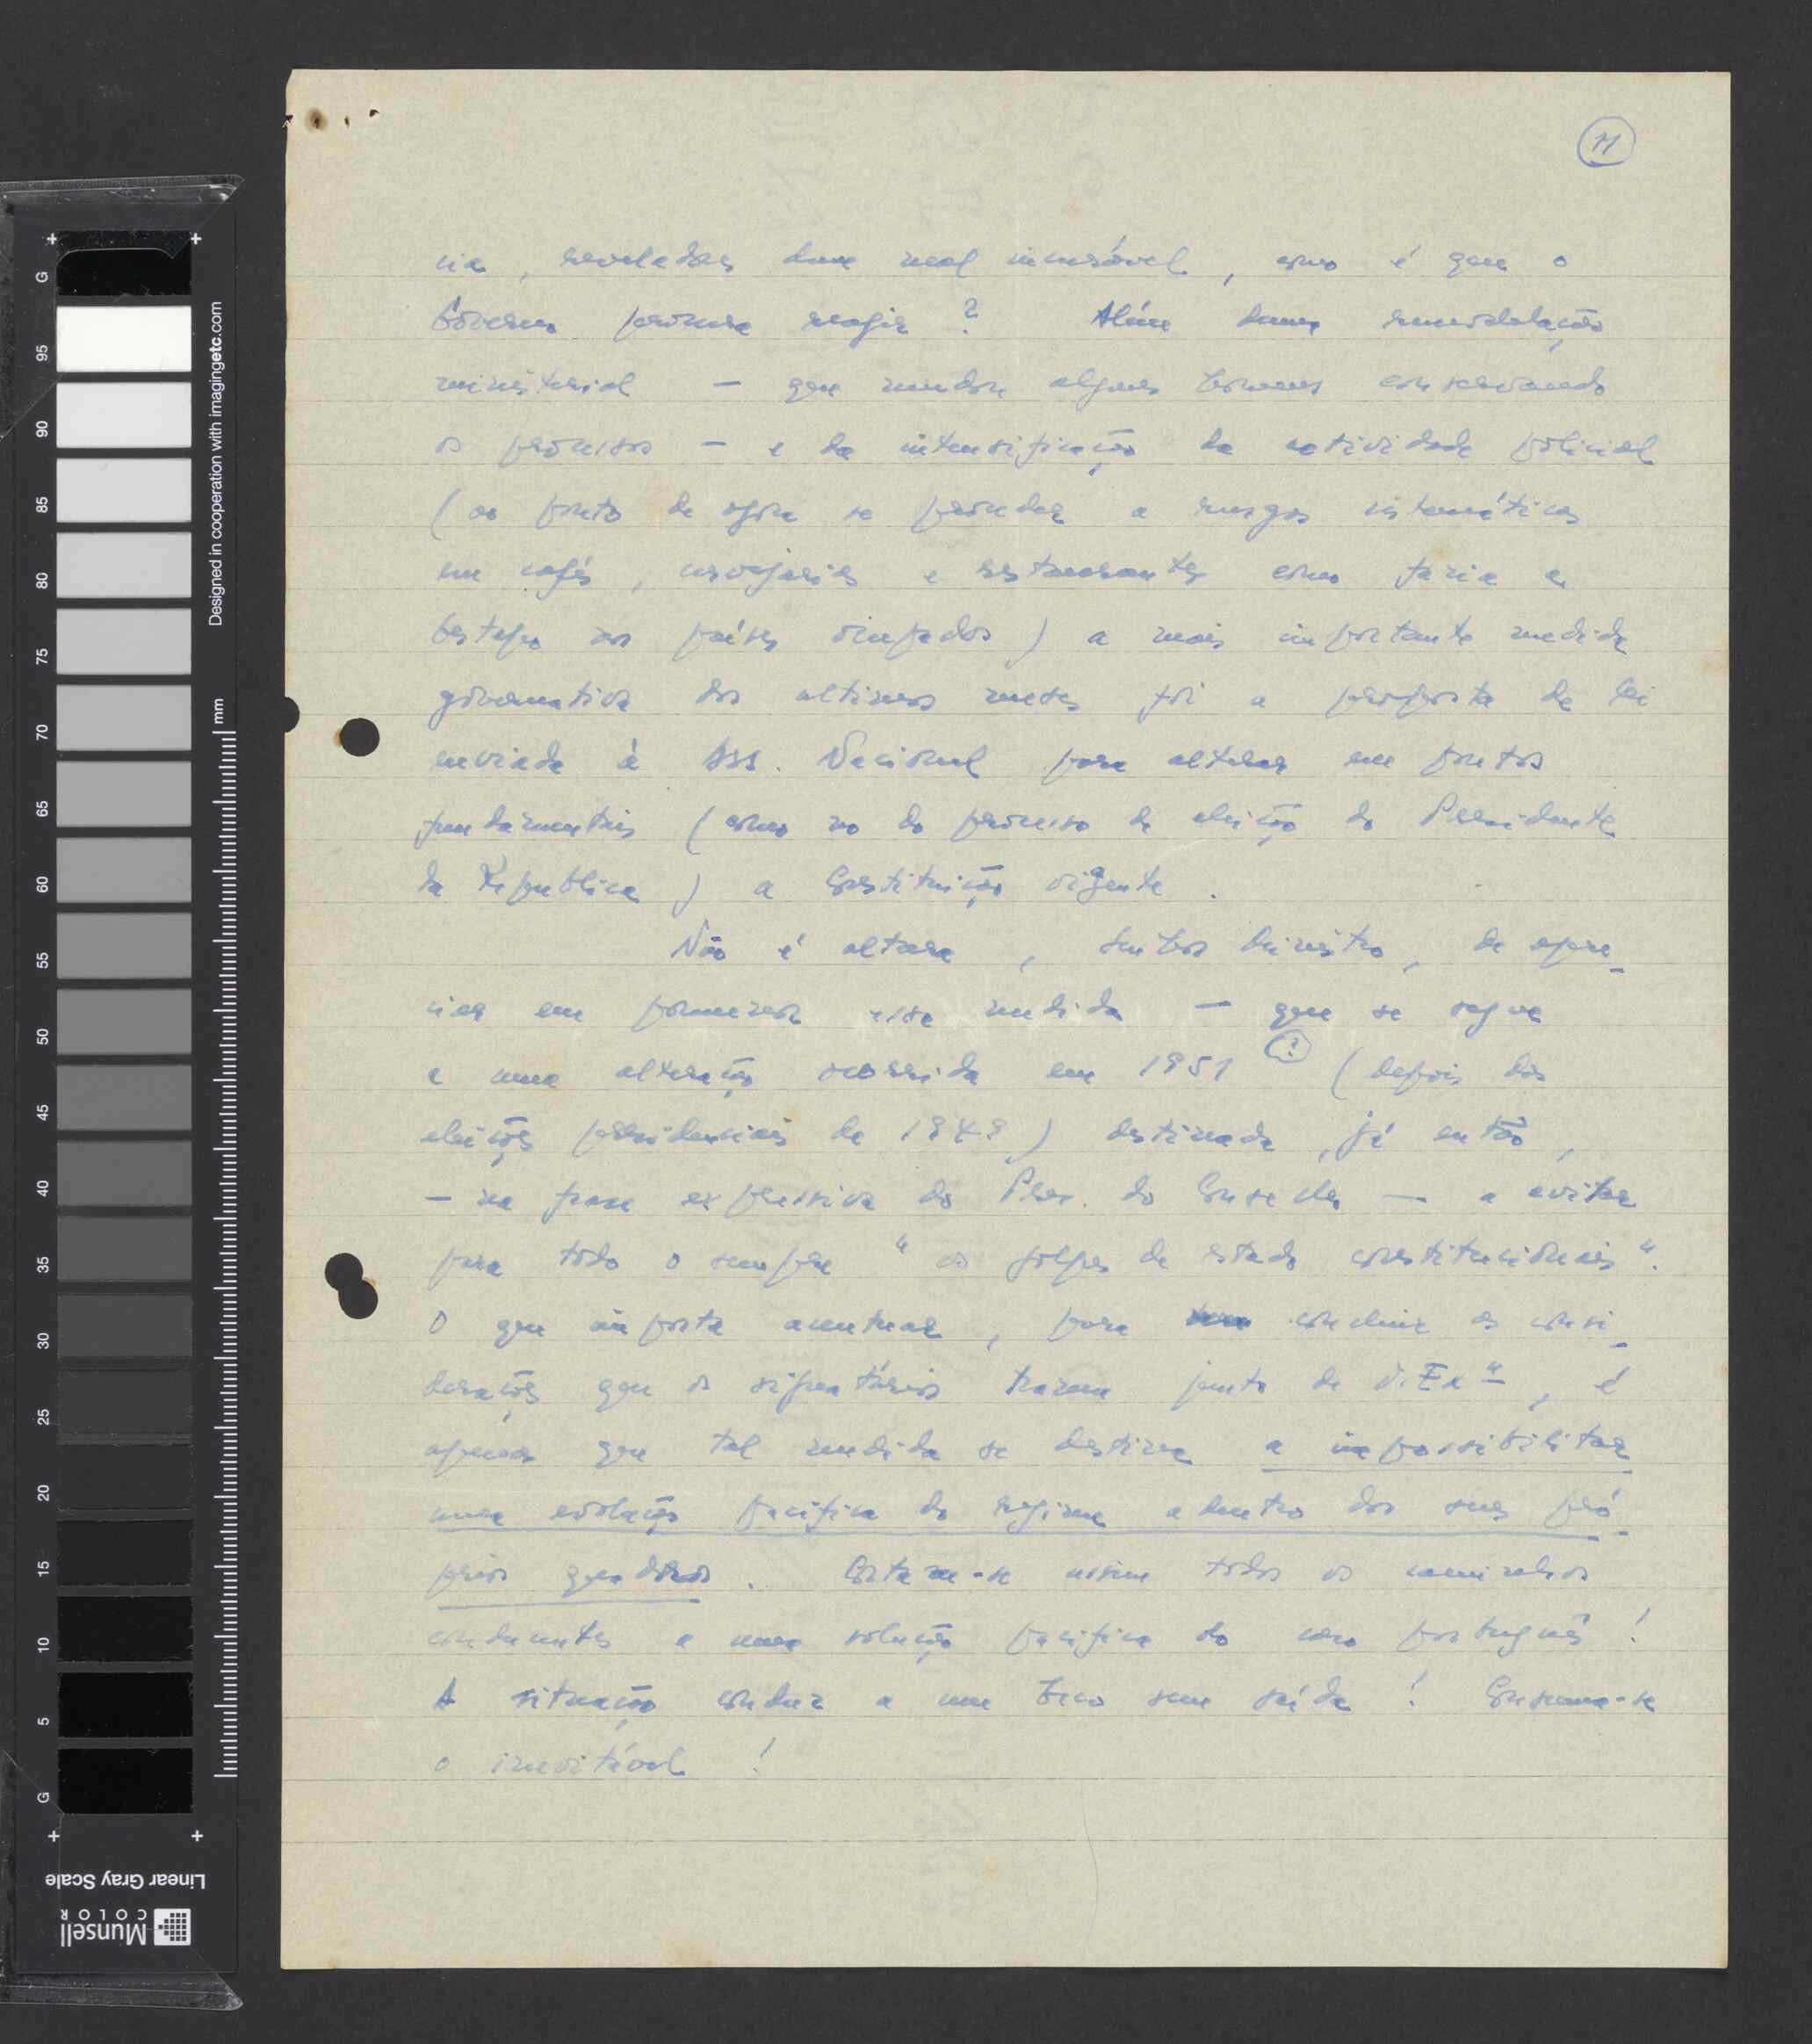 11
cia, reveladores dum mal incurável, como é que o
Governo procura reagir? Além duma remodelação
ministerial — que mudou alguns homens conservando
os processos — e da intensificação da actividade policial
(ao ponto de agora se proceder a rusgas sistemáticas
em cafés, cervejarias e restaurantes como fazia a
Gestapo nos países ocupados) a mais importante medida
governativa dos ultimos meses foi a proposta de lei
enviada à Ass. Nacional para alterar em pontos
fundamentais (como no do processo de eleição do Presidente
da Republica) a Constituição vigente.
Não é altura, Senhor Ministro, de apre-
ciar em pormenor essa medida — que se segue
a uma alteração ocorrida em 1951 (?) (depois das
eleições presidenciais de 1949) destinada, já então,
— na frase expressiva do Pres. do Conselho — a evitar
para todo o sempre "os golpes de estado constitucionais".
O que importa acentuar, para concluir as consi-
derações que os signatários trazem junto de V. Exª, é
apenas que tal medida se destina a impossibilitar
uma evolução pacifica do regime adentro dos seus pró-
prios quadros. Cortam-se assim todos os caminhos
conducentes a uma solução pacifica do caso português!
A situação conduz a um beco sem saída! Consuma-se
o inevitável!
G 95 90 85 80 75 70 65 60 55 50 45 40 35 30 25 20 15 10 5 G
mm
Designed in cooperation with imagingetc.com
Linear Gray Scale
Munsell
COLOR